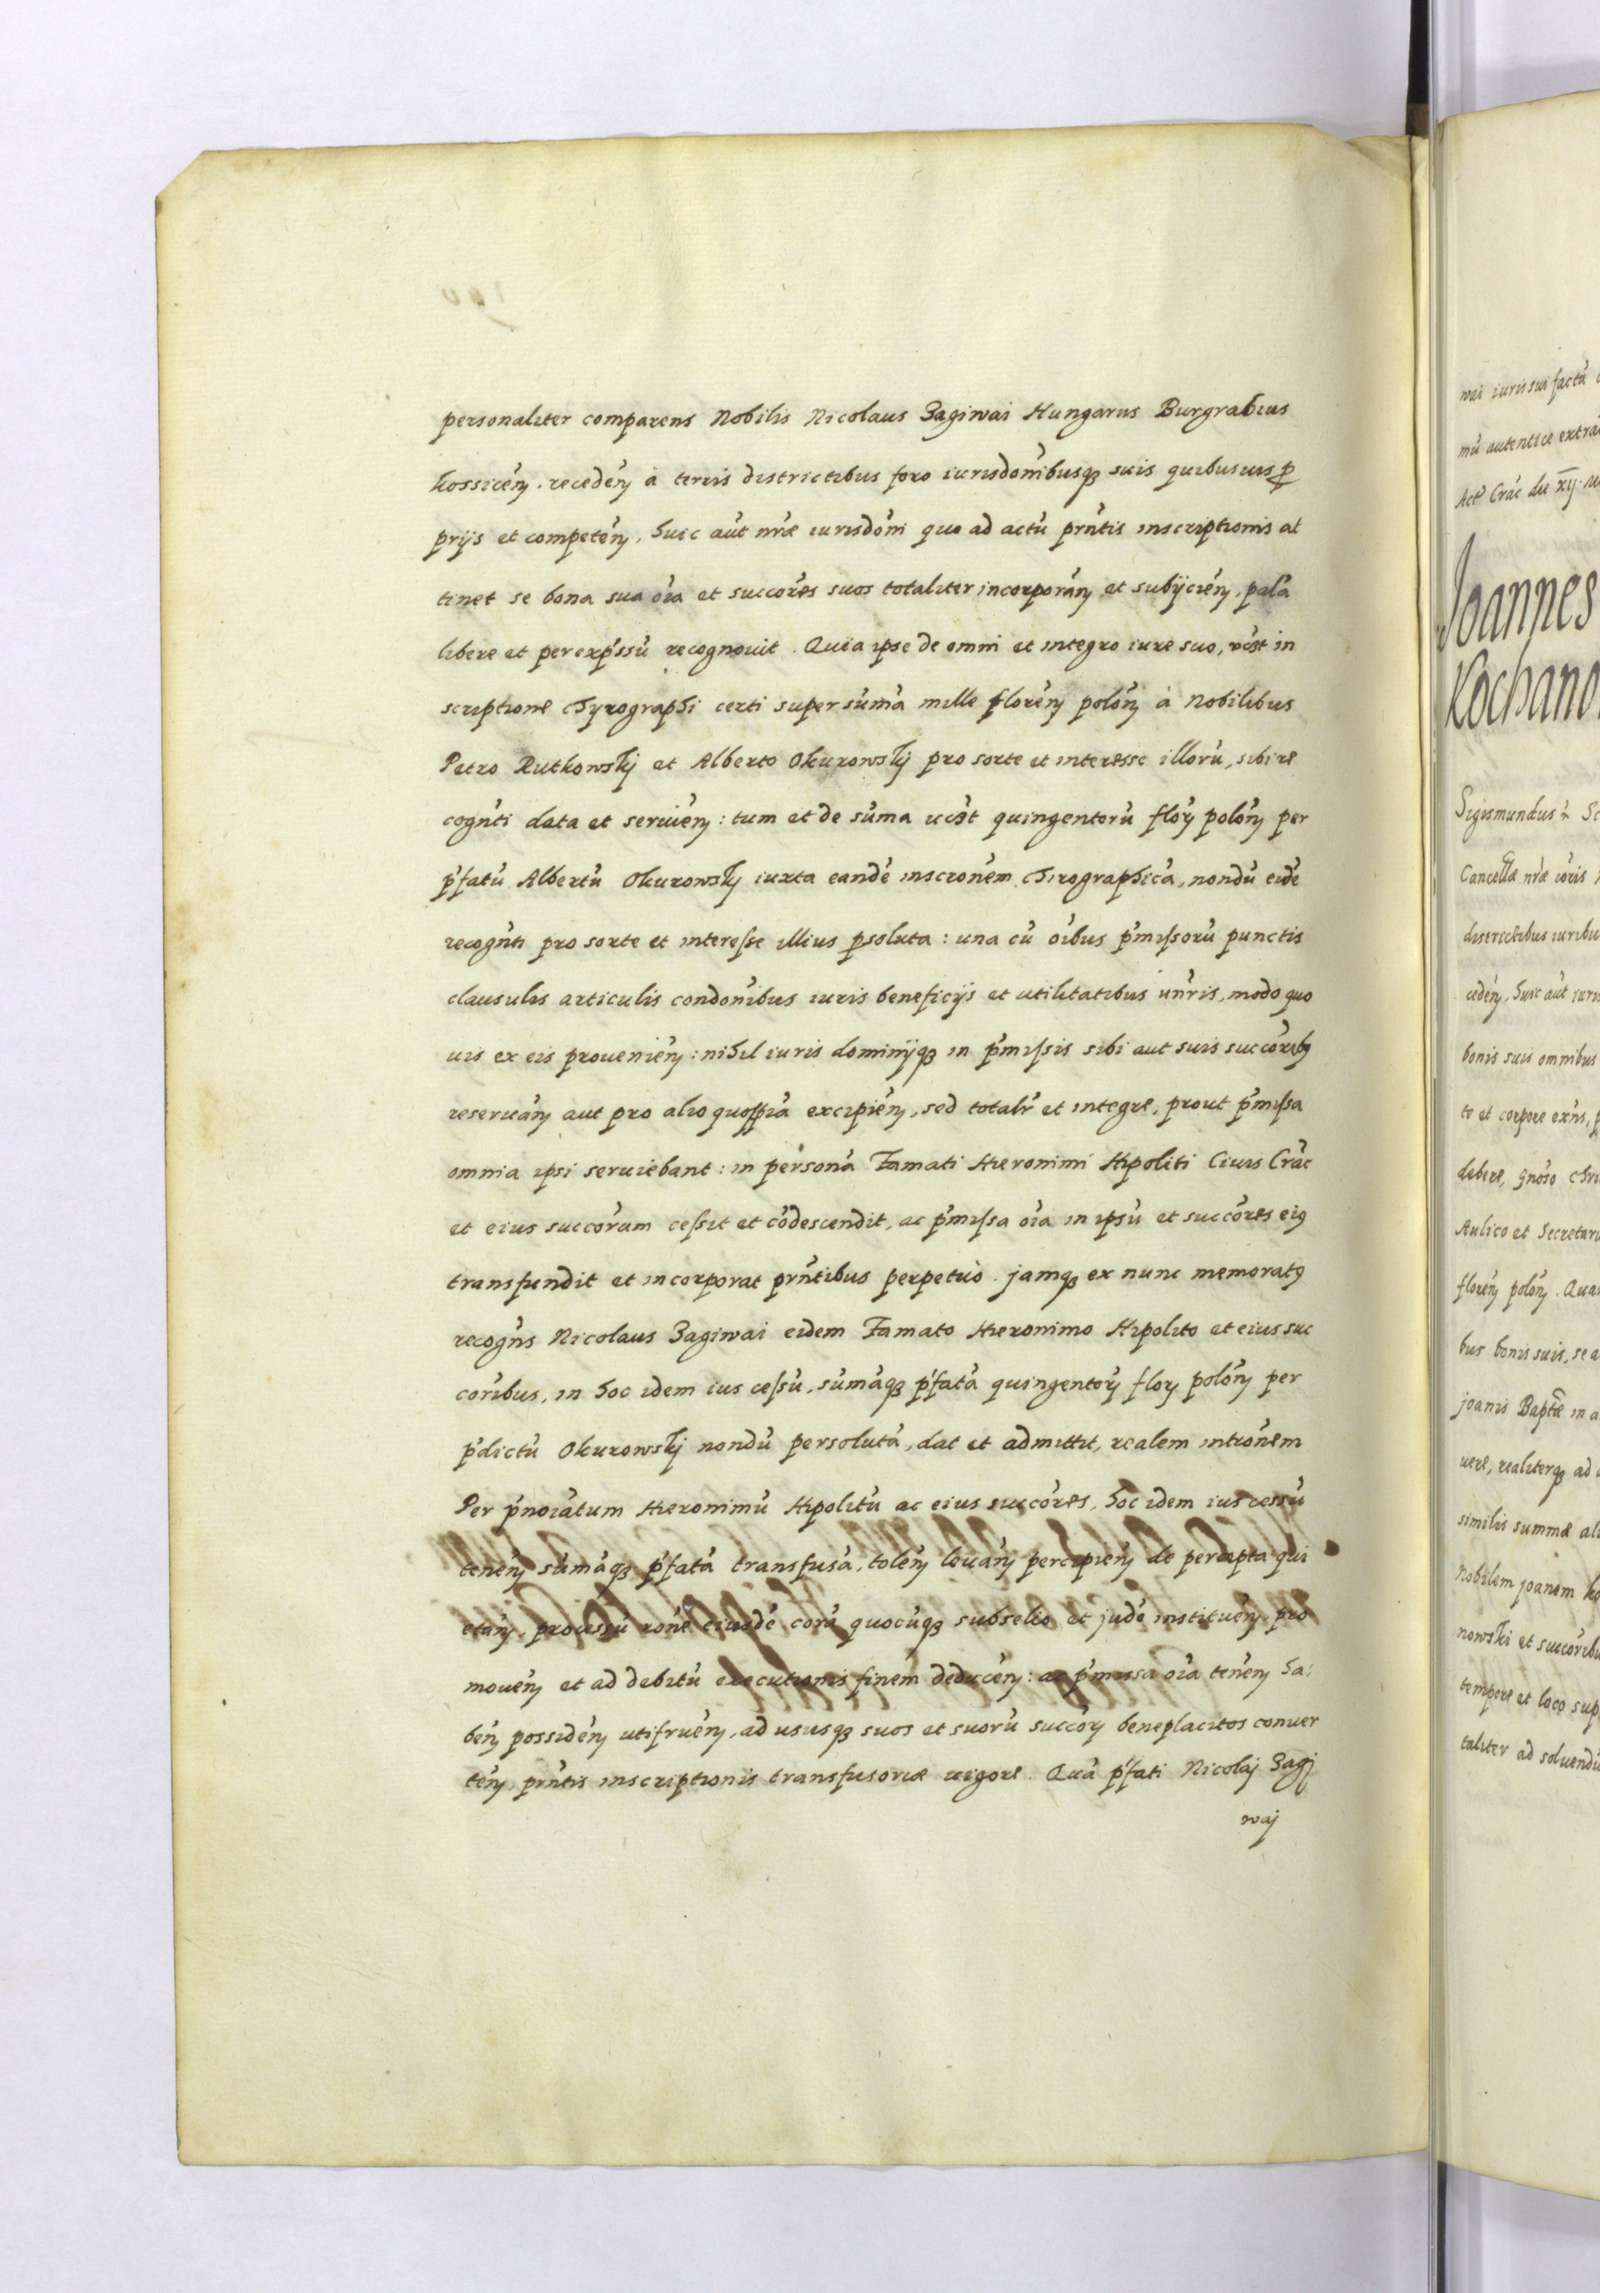 personaliter comparens Nobilis Nicolaus Zagiwai Hungarus Burgrabius
kossicen̄. receden̄ à terris districtibus foro iurisdōnibusq₃ suis quibusuis ꝓ
prijs et competen̄, huic aūt nr̄æ iurisdōni quo ad actū prn̄tis inscriptionis at
tinet se bona sua oīa et succōres suos totaliter incorporan̄ et subijcien̄, palā
libere et per exp̄ssū recognouit. Quia ipse de omni et integro iure suo, vc̄st in
scriptione chyrographi certi super sum̄ā mille floren̄ polon̄ à Nobilibus
Petro Rutkowskj et Alberto Okurowskij pro sorte et interesse illorū, sibi re
cogn̄ti data et seruien̄: tum et de sum̄a vc̄st quingentorū flor̄ polon̄ per
p̄fatū Albertū Okurowskj iuxta eandē inscrōnem chirographicā, nondū eidē
recogn̄ti pro sorte et interesse illius psoluta: una cū oībus p̄missorū punctis
clausulis articulis condōnibus iuris beneficijs et utilitatibus un̄ris, modo quo
uis ex eis prouenien̄: nihil iuris dominijq₃ in p̄missis sibi aut suis succōribꝯ
reseruan̄ aut pro alio quospiā excipien̄, sed totalr̄ et integre, prout p̄missa
omnia ipsi seruiebant: in personā Famati Hieronimi Hipoliti Ciuis Crac̄
et eius succōrum cessit et cōdescendit, ac p̄missa oīa in ipsū et succōres eiꝯ
transfundit et incorporat prn̄tibus perpetuò. jamq₃ ex nunc memoratꝯ
recogn̄s Nicolaus Zagiwai eidem Famato Hieronimo Hipolito et eius suc
cōribus, in hoc idem ius cessū, sum̄āq₃ p̄fatā quingentor̄ flor̄ polon̄ per
p̄dictū Okurowskj nondū persolutā, dat et admittit, realem intrōnem
Per p̄noīatum Hieronimū Hipolitū ac eius succōres, hoc idem ius cessū
tenen̄ sum̄āq₃ p̄fatā transfusā, tolen̄ leuan̄ percipien̄ de percepta qui
etan̄, processū rōne eiusdē corā quocūq₃ subselio et judē instituen̄ pro
mouen̄ et ad debitū executionis finem deducen̄: ac p̄missa oīa tenen̄ ha:
ben̄ possiden̄ utifruen̄, ad ususq₃ suos et suorū succōr̄ beneplacitos conuer
ten̄, prn̄tis inscriptionis transfusoriæ uigore. Quā p̄fati Nicolaj Zagj
waj
wai iuris sui factā
mū autentice extra
Act̄ Crac̄ die xij
Joannes
Kochano
Sigismundus
Cancell̄æ nr̄æ
districtibus iuribu
ceden̄, huic aūt iuris
bonis suis omnibus
te et corpore exn̄s,
debere, gn̄oso
Aulico et Secretar
floren̄ polon̄. Qua
bus bonis suis, se
joanis Bapt̄æ in
uere, realiterq₃ ad
similis summæ ali
Nobilem joanem ko
nowski et succōribu
tempore et loco sup
taliter ad soluendū